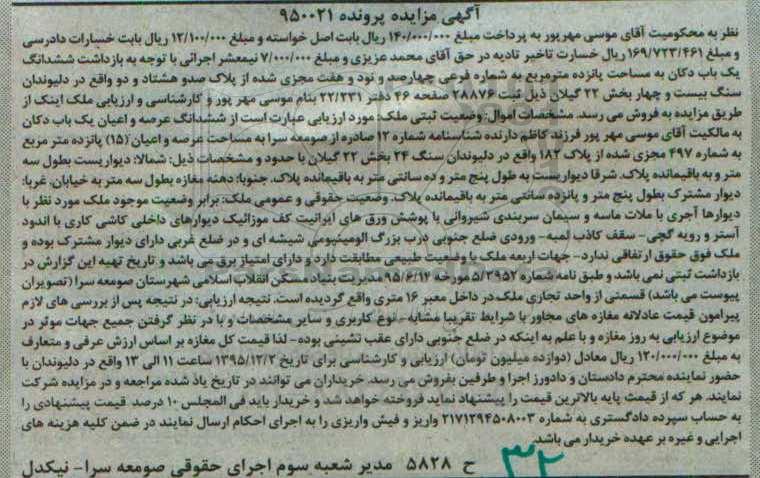 آگهی مزایده پرونده ۹۵۰۰۲۱
نظر به محکومیت آقای موسی مهرپور به پرداخت مبلغ ۱۴۰/۰۰۰/۰۰۰ ریال بابت اصل خواسته و مبلغ ۱۲/۱۰۰/۰۰۰ ریال بابت خسارات دادرسی
و مبلغ ۱۶۹/۷۲۳/۴۶۱ ریال خسارت تاخیر تادیه در حق آقای محمد عزیزی و مبلغ ۷/۰۰۰/۰۰۰ نیمعشر اجرائی با توجه به بازداشت ششدانگ
یک باب دکان به مساحت پانزده مترمربع به شماره فرعی چهارصد و نود و هفت مجزی شده از پلاک صدو هشتاد و دو واقع در دلیوندان
سنگ بیست و چهار بخش ۲۲ گیلان ذیل ثبت ۲۸۸۷۶ صفحه ۴۶ دفتر ۲۲/۲۳۱ بنام موسی مهر پور و کارشناسی و ارزیابی ملک اینک از
طریق مزایده به فروش می رسد. مشخصات اموال: وضعیت ثبتی ملک: مورد ارزیابی عبارت است از ششدانگ عرصه و اعیان یک باب دکان
به مالکیت آقای موسی مهر پور فرزند کاظم دارنده شناسنامه شماره ۱۲ صادره از صومعه سرا به مساحت عرصه و اعیان (۱۵) پانزده متر مربع
به شماره ۴۹۷ مجزی شده از پلاک ۱۸۲ واقع در دلیوندان سنگ ۲۴ بخش ۲۲ گیلان با حدود و مشخصات ذیل: شمالا: دیواریست بطول سه
متر و به باقیمانده پلاک. شرقا دیواریست به طول پنج متر و ده سانتی متر به باقیمانده پلاک. جنوبا: دهنه مغازه بطول سه متر به خیابان. غربا:
دیوار مشترک بطول پنج متر و پانزده سانتی متر به باقیمانده پلاک. وضعیت حقوقی و عمومی ملک: برابر وضعیت موجود ملک مورد نظر با
دیوارها آجری با ملات ماسه و سیمان سربندی شیروانی با پوشش ورق های ایرانیت کف موزائیک دیوارهای داخلی کاشی کاری با اندود
آستر و رویه گچی- سقف کاذب لمبه- ورودی ضلع جنوبی درب بزرگ الومینیومی شیشه ای و در ضلع غربی دارای دیوار مشترک بوده و
ملک فوق حقوق ارتفاقی ندارد- جهات اربعه ملک با وضعیت طبیعی مطابقت دارد و دارای امتیاز برق می باشد و تاریخ تهیه این گزارش در
بازداشت ثبتی نمی باشد و طبق نامه شماره ۵/۲۹۵۲ مورخه ۹۵/۶/۱۴ مدیریت بنیاد مسکن انقلاب اسلامی شهرستان صومعه سرا (تصویر ان
پیوست می باشد) قسمتی از واحد تجاری ملک در داخل معبر ۱۶ متری واقع گردیده است. نتیجه ارزیابی: در نتیجه پس از بررسی های لازم
پیرامون قیمت عادلانه مغازه های مجاور با شرایط تقریبا مشابه- نوع کاربری و سایر مشخصات و با در نظر گرفتن جمیع جهات موثر در
موضوع ارزیابی به روز مغازه و با علم به اینکه در ضلع جنوبی دارای عقب نشینی بوده- لذا قیمت کل مغازه بر اساس ارزش عرفی و متعارف
به مبلغ ۱۲۰/۰۰۰/۰۰۰ ریال معادل (دوازده میلیون تومان) ارزیابی و کارشناسی برای تاریخ ۱۳۹۵/۱۲/۲ ساعت ۱۱ الی ۱۳ واقع در دلیوندان با
حضور نماینده محترم دادستان و دادورز اجرا و طرفین بفروش می رسد. خریداران می توانند در تاریخ یاد شده مراجعه و در مزایده شرکت
نمایند. هر که از قیمت پایه بالاترین قیمت را پیشنهاد نماید فروخته خواهد شد و خریدار باید فی المجلس ۱۰ درصد قیمت پیشنهادی را
به حساب سپرده دادگستری به شماره ۲۱۷۱۲۹۴۵۰۸۰۰۳ واریز و فیش واریزی را به اجرای احکام ارسال نمایند در ضمن کلیه هزینه های
اجرایی و غیره بر عهده خریدار می باشد.
ح ۵۸۲۸ مدیر شعبه سوم اجرای حقوقی صومعه سرا- نیکدل
۳۲